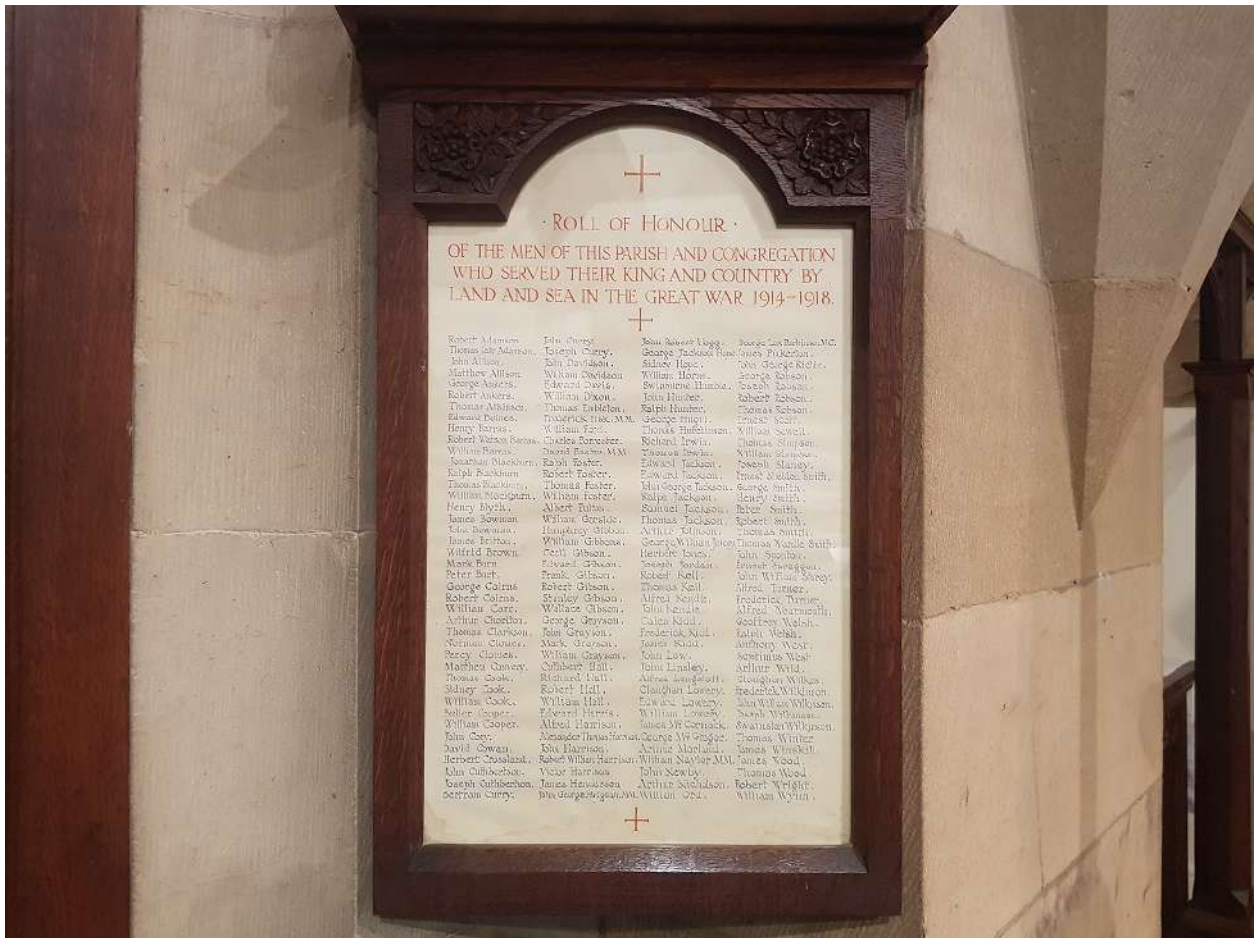 · ROLL OF HONOUR ·
OF THE MEN OF THIS PARISH AND CONGREGATION
WHO SERVED THEIR KING AND COUNTRY BY
LAND AND SEA IN THE GREAT WAR 1914–1918.
Robert Adamson
Thomas Adamson.
John Allison
Matthew Allison
George Ankers.
Robert Ankers.
Thomas Atkinson.
Edward Baines.
Henry Barras.
Robert Watson Barras.
William Barras.
Jonathan Blackburn.
Ralph Blackburn
Thomas Blackburn.
William Blackburn.
Henry Blyth.
James Bowman
John Bowman.
James Britton.
Wilfrid Brown
Mark Burn
Peter Burt.
George Cairns
Robert Cairns.
William Carr.
Arthur Charlton.
Thomas Clarkson.
Norman Clowes.
Percy Clowes.
Matthew Connery.
Thomas Cook.
Sidney Cook.
William Cook.
Cooper.
William Cooper.
John Cory.
David Cowan.
Herbert Crossland.
John Cuthbertson.
Joseph Cuthbertson.
Bertram Curry.
John Curry.
Joseph Curry.
John Davidson.
William Davidson
Edward Davis.
William Dixon.
Thomas Embleton.
Frederick M.M.
William Ford.
Charles Forrester.
David Foster, M.M.
Ralph Foster.
Robert Foster.
Thomas Foster.
William Foster.
Albert Fulton.
William Garside.
Humphrey Gibbon.
William Gibbons.
Cecil Gibson.
Edward Gibson.
Frank Gibson.
Robert Gibson.
Stanley Gibson.
Wallace Gibson.
George Grayson.
John Grayson.
Mark Grayson.
William Grayson.
Cuthbert Hall.
Richard Hall.
Robert Hall.
William Hall.
Edward Harris.
Alfred Harrison.
Alexander Thomas Harrison.
John Harrison.
Robert William Harrison.
Victor Harrison
James Henderson
John George M.M.
John Robert Hogg.
George Jackson
Sidney Hope.
William Horne.
Swinburne Humble.
John Hunter.
Ralph Hunter.
George
Thomas Hutchinson.
Richard Irwin.
Thomas Irwin.
Edward Jackson.
Edward Jackson.
John George Jackson.
Ralph Jackson.
Samuel Jackson.
Thomas Jackson.
Arthur Johnson.
George William Jones
Herbert Jones.
Joseph Jordan.
Robert Kell.
Thomas Kell.
Alfred Kendle.
John Kendle
Caleb Kidd.
Frederick Kidd.
James Kidd.
John Law.
John Linsley.
Alfred Longstaff.
Claughan Lowery.
Edward Lowery.
William Lowery.
James McCormack.
George
Arthur Morland.
William Naylor M.M.
John Newby.
Arthur Nicholson.
William Ord.
George Parkinson, M.C.
James Pinkerton.
John George
George Robson.
Joseph Robson.
Robert Robson.
Thomas Robson.
Ernest Scott.
William Sewell.
Thomas Simpson.
William
Joseph Slaney.
Ernest Sheldon Smith.
George Smith.
Henry Smith.
Peter Smith.
Robert Smith.
Thomas Smith.
Thomas Wardle Smith.
John
Ernest Swaggon.
John William
Alfred Turner.
Frederick Turner.
Alfred
Geoffrey Welsh.
Ralph Welsh.
Anthony West.
Septimus West
Arthur Wild.
Claughan Wilkes.
Frederick Wilkinson.
John William Wilkinson.
Joseph Wilkinson.
Swainston Wilkinson.
Thomas Winter
James Winskill.
James Wood.
Thomas Wood.
Robert Wright.
William Wynn.